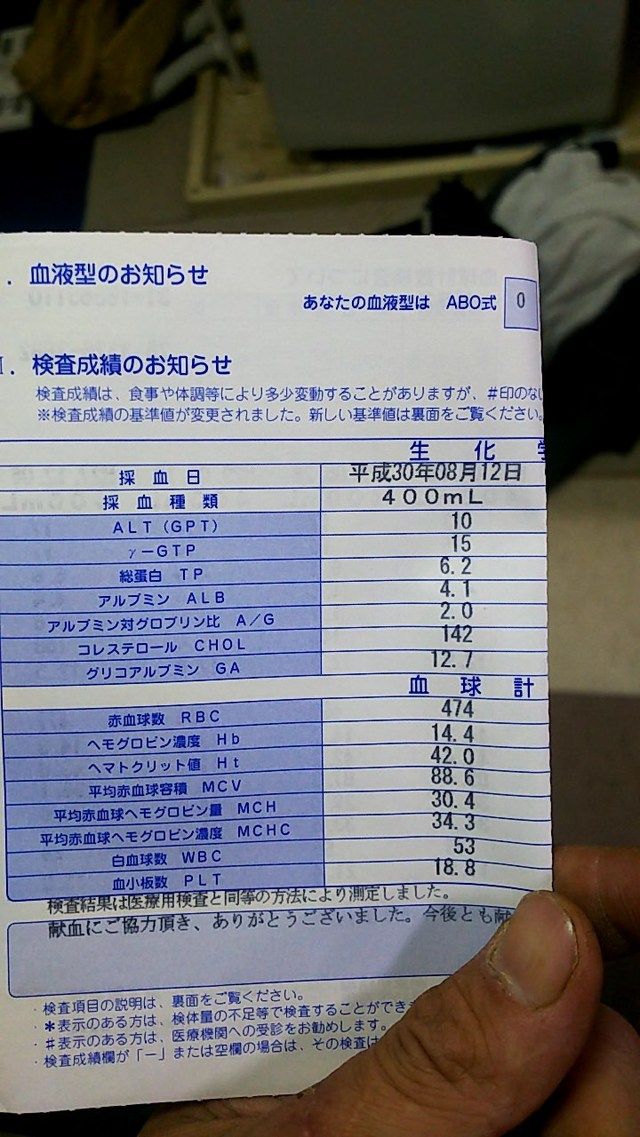 . 血液型のお知らせ
あなたの血液型は ABO式 O
. 検査成績のお知らせ
検査成績は、食事や体調等により多少変動することがありますが、#印のな
※検査成績の基準値が変更されました。新しい基準値は裏面をご覧ください。
生 化
採 血 日 平成30年08月12日
採 血 種 類 400mL
ALT (GPT) 10
γ-GTP 15
総蛋白 TP 6.2
アルブミン ALB 4.1
アルブミン対グロブリン比 A/G 2.0
コレステロール CHOL 142
グリコアルブミン GA 12.7
血 球 計
赤血球数 RBC 474
ヘモグロビン濃度 Hb 14.4
ヘマトクリット値 Ht 42.0
平均赤血球容積 MCV 88.6
平均赤血球ヘモグロビン量 MCH 30.4
平均赤血球ヘモグロビン濃度 MCHC 34.3
白血球数 WBC 53
血小板数 PLT 18.8
検査結果は医療用検査と同等の方法により測定しました。
献血にご協力頂き、ありがとうございました。今後とも献
・検査項目の説明は、裏面をご覧ください。
・*表示のある方は、検体量の不足等で検査することができ
・#表示のある方は、医療機関への受診をお勧めします。
・検査成績欄が「-」または空欄の場合は、その検査は